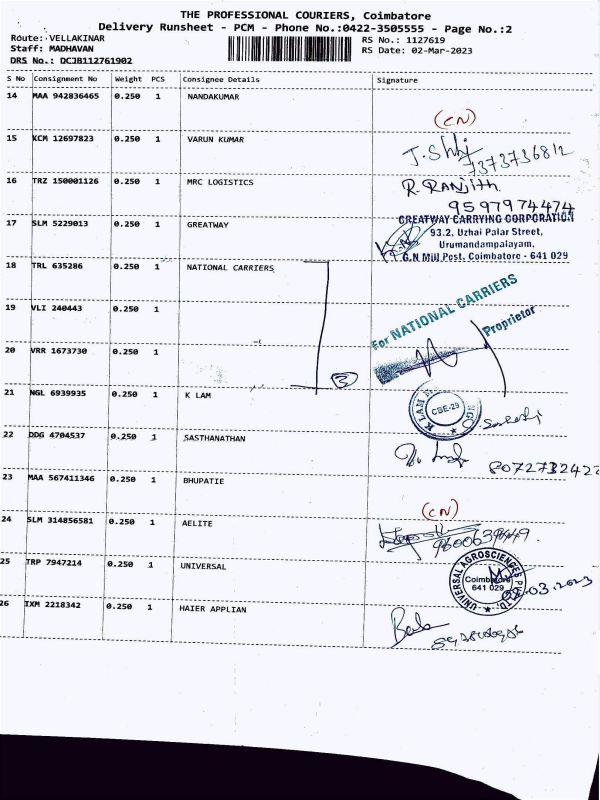 THE PROFESSIONAL COURIERS, Coimbatore
Delivery Runsheet - PCM - Phone No.:0422-3505555 - Page No.:2
Route: VELLAKINAR
RS No.: 1127619
Staff: MADHAVAN
RS Date: 02-Mar-2023
DRS No.: DCJB112761902
S No Consignment No Weight PCS Consignee Details Signature
14 MAA 942836465 0.250 1 NANDAKUMAR
(CN)
15 KCM 12697823 0.250 1 VARUN KUMAR
7373736812
16 TRZ 150001126 0.250 1 MRC LOGISTICS
R. RANJith
9597974474
17 SLM 5229013 0.250 1 GREATWAY
GREATWAY CARRYING CORPORATION
93.2, Uzhai Palar Street,
Urumandampalayam,
G.N Mill Post, Coimbatore - 641 029
18 TRL 635286 0.250 1 NATIONAL CARRIERS
19 VLI 240443 0.250 1
For NATIONAL CARRIERS
Proprietor
20 VRR 1673730 0.250 1
3
21 NGL 6939935 0.250 1 K LAM
K LAM
CBE-29
22 DDG 4704537 0.250 1 SASTHANATHAN
8072732422
23 MAA 567411346 0.250 1 BHUPATIE
(CN)
24 SLM 314856581 0.250 1 AELITE
9600639449
25 TRP 7947214 0.250 1 UNIVERSAL
UNIVERSAL AGROSCIENCES
Coimbatore
641 029
02.03.2023
26 IXM 2218342 0.250 1 HAIER APPLIAN